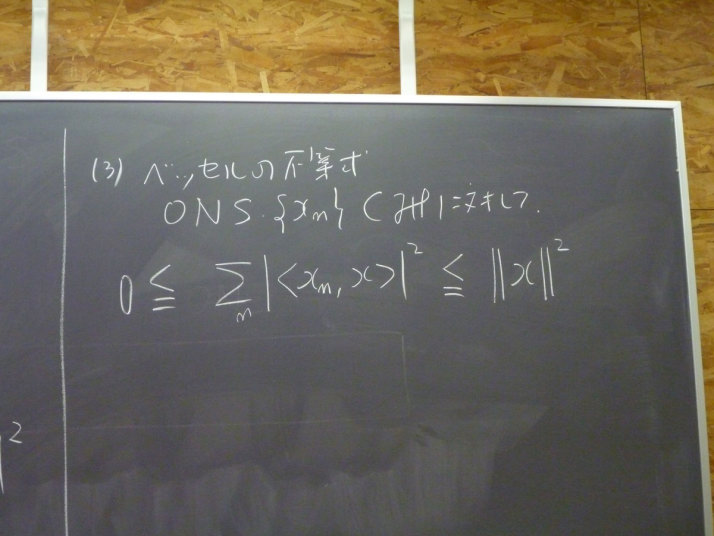 (3) ベッセルの不等式
ONS. {xn} ⊂ ℋ に対して.
0 ≦ Σn |<xn, x>|² ≦ ||x||²
2